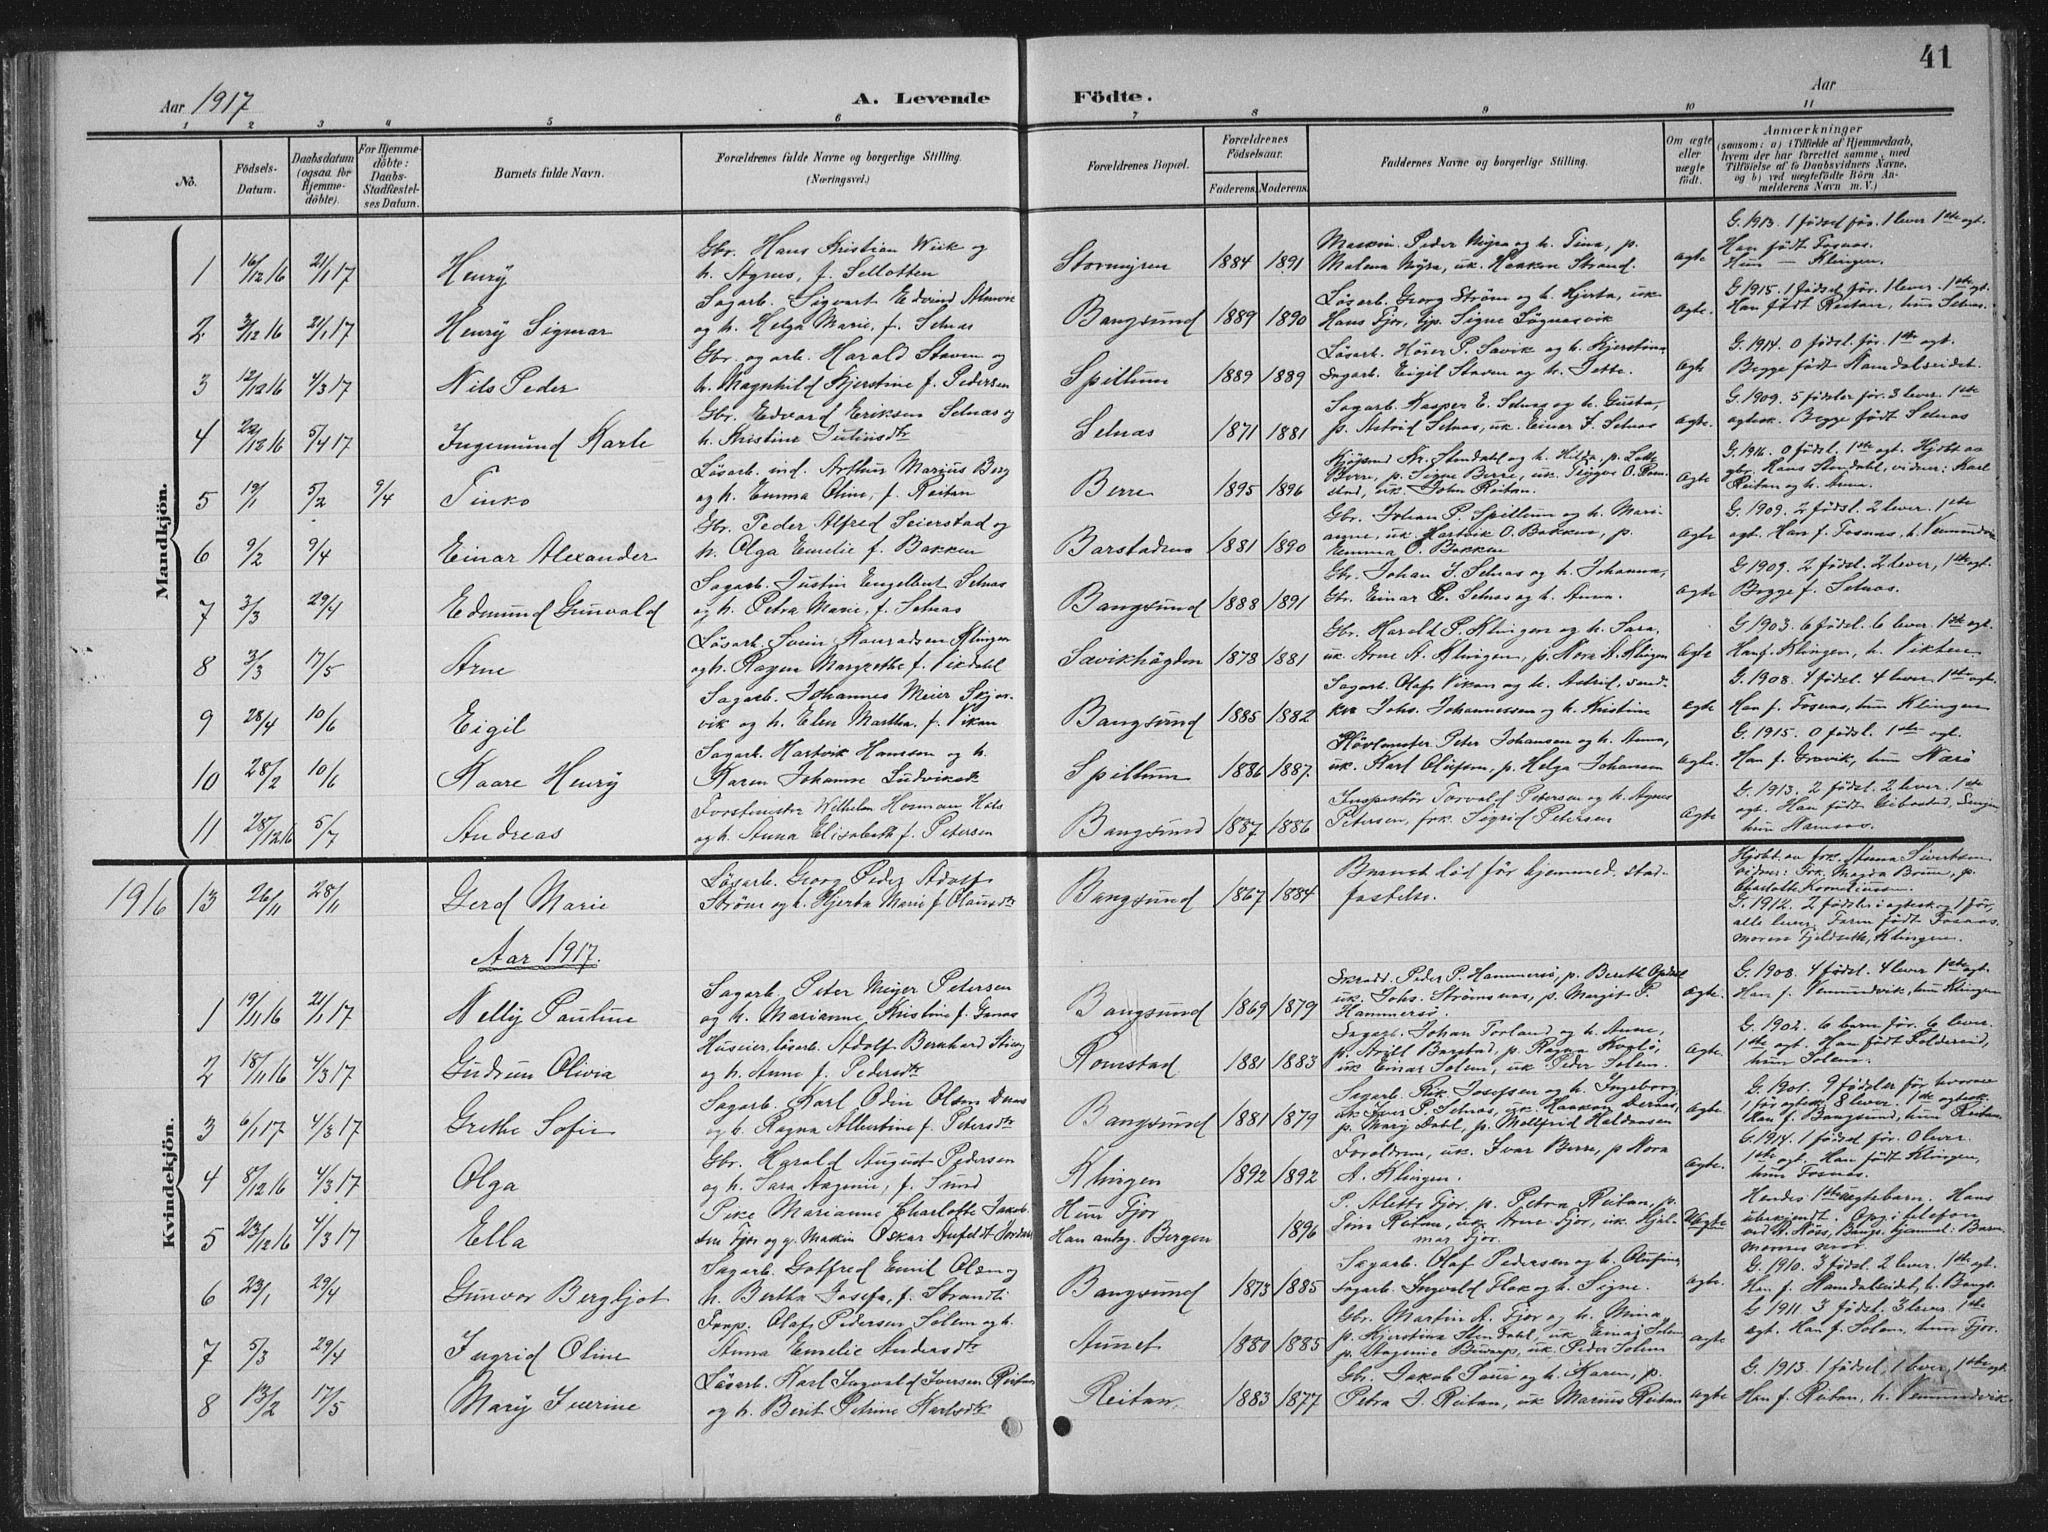 41
Aar 1917 A. Levende Födte. Aar
1 2 3 4 5 6 7 8 9 10 11
No.
Födsels-
Datum.
Daabsdatum
(ogsaa for
Hjemme-
döbte).
For Hjemme-
döbte:
Daabs-
Stadfæstel-
ses Datum.
Barnets fulde Navn.
Forældrenes fulde Navne og borgerlige Stilling.
(Næringsvei.)
Forældrenes Bopæl.
Forældrenes
Födselsaar.
Faderens. Moderens.
Faddernes Navne og borgerlige Stilling.
Om ægte
eller
uægte
födt.
Anmærkninger
(saasom: a) i Tilfælde af Hjemmedaab,
hvem der har forrettet samme, med
Tilföielse af to Daabsvidners Navne,
og b) ved uægtefödte Börn An-
melderens Navn m. V.)
Mandkjön.
1 16/12 16 21/1 17 Henry
Gbr. Hans Kristian Wiik og
h. Agnes, f. Sellotten
Stormyren 1884 1891
Maskin. Peder Myra og h. Tina, p.
Malena Myra, uk. Haakon Strand.
ægte
G. 1913. 1 födsel för. 1 lever 1ste egt.
Han födt Fosnæs.
Hun — Klingen.
2 3/12 16 21/1 17 Henry Sigmar
Sagarb. Sigvart Edvind
og h. Helga Marie, f. Selnæs
Bangsund 1889 1890
Lösarb. Georg Ström og h. Hjerta, uk.
Hans Fjær, Signe
ægte.
G. 1915. 1 födsel för. 1 lever. 1ste egt.
Han födt Reitan, hun Selnæs.
3 12/12 16 4/3 17 Nils Peder
Gbr. og arb. Harald Staven og
h. Magnhild Kjerstine f. Pedersen
Spillum 1889 1889
Lösarb. P. Savik og h. Kjerstina,
Sagarb. Eigil Staven og h. Jette.
ægte
G. 1914. 0 födsl. för. 1ste egt.
Begge födt Namdalseidet.
4 22/12 16 5/4 17 Ingemund Karle
Gbr. Edvard Eriksen Selnæs og
h. Kristine Julinsdtr
Selnæs 1871 1881
Sagarb. Kasper E. Selnæs og h. Gusta,
p. Astrid Selnæs, uk. Einar J. Selnæs
ægte.
G. 1909. 5 födsler för. 3 lever. 1ste
egtesk. Begge födt Selnæs
5 19/1 5/2 9/4 Finko
Lösarb. ind. Arthur Marius Berg
og h. Emma Oline, f. Reitan
Berre 1895 1896
Stendahl og h. Hilda, p. Lotte
Berre, p. Signe Berre, uk. Trygve O. Rom-
stad, uk. John Reitan.
ægte
G. 1916. 0 födsel. 1ste egt. Hjdöbt av
gbr. Hans Stendahl, vidner: Karl
Reitan og h. Anna.
6 9/2 9/4 Einar Alexander
Gbr. Peder Alfred Seierstad og
h. Olga Emelie f. Bakken
Barstadmo 1881 1890
Gbr. Johan P. Spillum og h. Mari-
anne, uk. Hartvik O. Bakken, p.
Emma O. Bakken
ægte
G. 1909. 2 födsl. 2 lever. 1ste
egt. Han f. Fosnæs, h. Vemundvik
7 3/3 29/4 Edmund Gunvald
Sagarb. Justin Engelbert Selnæs
og h. Petra Marie, f. Selnæs
Bangsund 1888 1891
Gbr. Johan J. Selnæs og h. Johanna,
Gbr. Einar E. Selnæs og h. Anna.
ægte
G. 1909. 2 födsl. 2 lever, 1ste egt.
Begge f. Selnæs.
8 3/3 17/5 Arne
Lösarb. Svein Konradsen Klingen
og h. Ragna Margrethe f. Vikdahl
Savikhögden 1878 1881
Gbr. Harald P. Klingen og h. Sara,
uk. Arne A. Klingen, p. Nora A. Klingen
ægte
G. 1903. 6 födsl. 6 lever. 1ste egt.
Han f. Klingen, h. Vikten
9 28/4 10/6 Eigil
Sagarb. Johannes Meier Skjær-
vik og h. Elen Martha, f. Vikan
Bangsund 1885 1882
Sagarb. Olaf Vikan og h. Astrid,
Johs. Johannessen og h. Kristine
ægte
G. 1908. 4 födsl. 4 lever. 1ste egt.
Han f. Fosnæs, hun Klingen
10 28/2 10/6 Kaare Henry
Sagarb. Hartvik Hansen og h.
Karen Johanne Ludviksdtr
Spillum 1886 1887.
Hövlemester Peter Johansen og h. Anna,
uk. Karl Olufsen, p. Helga Johansen
ægte.
G. 1915. 0 födsl. 1ste egt.
Han f. Gravik, hun Nærö
11 28/12 16 5/7 Andreas
Forstmester Wilhelm Herman
og h. Anna Elisabeth f. Petersen
Bangsund 1887 1886
Inspektör Torvald Petersen og h. Agnes
Petersen, frk. Sigrid Petersen
ægte
G. 1913. 2 födsel. 2 lever. 1ste
egt. Han födt Gibostad, Senjen
hun Namsos.
1916 13 26/11 28/11 Gerd Marie
Lösarb. Georg Peder Adolf
Ström og h. Hjerta Marie f. Olausdtr
Bangsund 1867 1884
Barnet död för hjemmed. stad-
fæstelse.
Hjdöbt av frk. Anna Sivertsen
vidner: Frk. Magda Bruun, p.
Charlotte Kornelinssen.
G. 1912. 2 födsler i egtesk. og 1 för,
alle lever. Faren födt Fosnæs
moren Fjeldseth, Klingen.
Aar 1917.
Kvindekjön.
1 19/11 16 21/1 17 Nelly Pauline
Sagarb. Peter Meyer Petersen
og h. Marianne Kristine f.
Bangsund 1869 1879
Skradd. Peder P. Hammersö, p. Bereth Opdal
uk. Johs. Strömsnæs, p. Margit P.
Hammersö.
ægte.
G. 1908. 4 födsl. 4 lever 1ste egt.
Han f. Vemundvik, hun Klingen
2 18/11 16 4/3 17 Gudrun Olivia
Huseier, lösarb. Adolf Bernhard
og h. Anne f. Pedersdtr
Romstad 1881 1883
Sagarb. Johan Torland og h. Anne,
p. Barstad, p. Ragna
uk Einar Solem, uk Peder Solem.
ægte
G. 1902. 6 barn för. 6 lever.
1ste egt. Han födt Foldereid,
hun Solem.
3 6/1 17 4/3 17 Grethe Sofie
Sagarb. Karl Odin Olsen
og h. Ragna Albertine f. Petersdtr
Bangsund 1881 1879
Sagarb. Rik. Josefsen og h. Ingeborg,
uk. Iver P. Selnæs, uk. Haakon
p. Mary Dahl, p. Mellfrid Haldansen
ægte.
G. 1901. 9 födsler för hvorav
1 för egtesk. 8 lever. 1ste egtesk.
Han f. Bangsund, hun Reitan
4 8/12 16 4/3 17 Olga
Gbr. Harald August Pedersen
og h. Sara Aagenie, f. Sund
Klingen 1892 1892
Foreldrene, uk. Ivar Berre, p Nora
A. Klingen.
ægte.
G. 1914. 1 födsel för. 0 lever.
1ste egt. Han födt Klingen,
hun Fosnæs.
5 23/12 16 4/3 17 Ella
Pike Marianne Charlotte Jakob-
sen Fjær og g. Maskin Oskar Aufeldt
Hun Fjær
Han antag. Bergen
1896
P. Aletta Fjær, p. Petra Reitan, p.
Reitan, uk. Arne Fjær, uk. Hjal-
mar Fjær.
Uægte
Hendes 1ste uegtebarn. Hans
ubekjendt. Opg. i telefon
6 23/1 29/4 Gunvor Bergljot
Sagarb. Gotfred Emil Olsen og
h. Bertha Josefa, f. Strandli
Bangsund 1873 1885
Sagarb. Olaf Pedersen og h. Olufine
Sagarb. Ingvald Flak og h. Signe.
ægte.
G. 1910. 3 födsl. 2 lever. 1ste egt.
Han f. Namdalseidet, h. Bangs.
7 5/3 29/4 Ingrid Oline
Olaf Pedersen Solem og h.
Anna Emelie Andersdtr
Aunet 1880 1885
Gbr. Martin A. Fjær og h. Mina,
p. Kjerstina Stendahl, uk Einar Solem
p. Aagenie uk. Peder Solem
ægte
G 1911. 3 födsl. 3 lever. 1ste
egt. Han f. Solem, hun Fjær.
8 13/2 17/5 Mary Iverine
Lösarb. Karl Ingvald Iversen Reitan
og h. Berit Petrine Karlsdtr
Reitan 1883 1877
Gbr. Jakob og h. Karen, p.
Petra J. Reitan, uk Marius Reitan
ægte
G. 1913. 1 födsel, 1 lever, 1ste egt.
Han f. Reitan, h. Vemundvik.